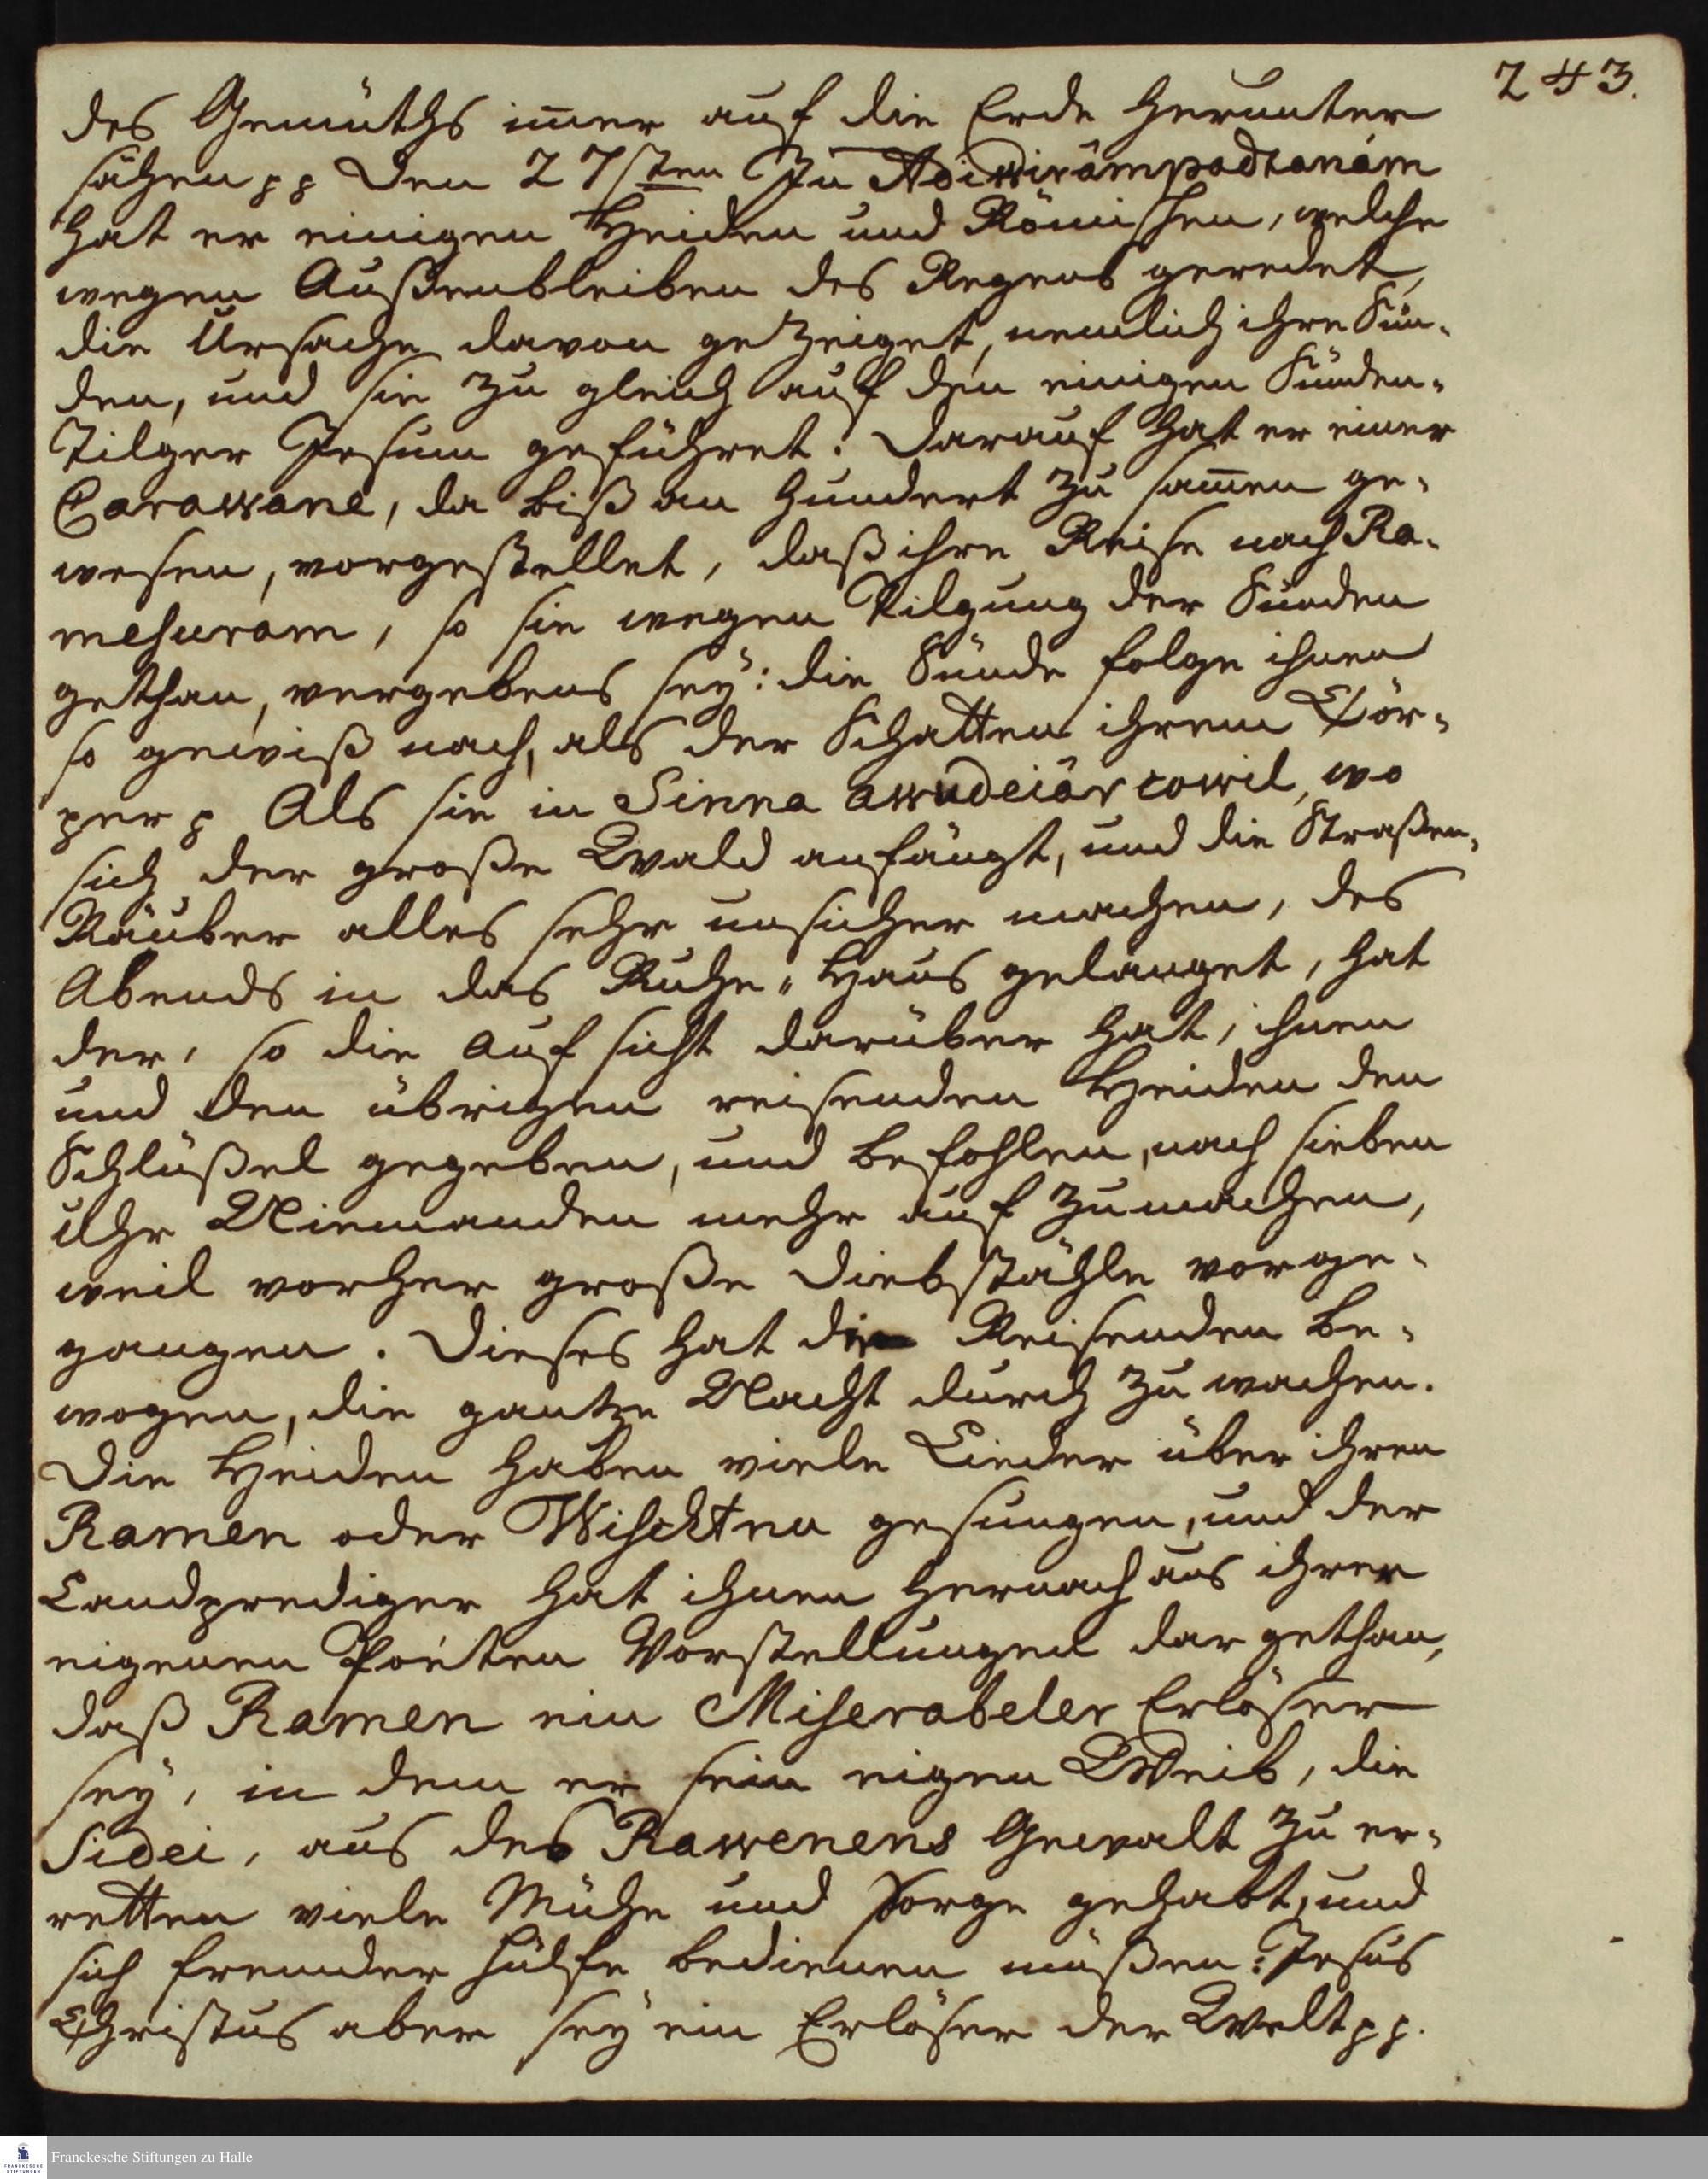 243.
des Gemüths im̄er auf die Erde herunter
sähen pp Den 27sten Zu Adiwirâmpadtanám
hat er einigen Heiden und Römischen, welche
wegen Außenbleiben des Regens geredet,
die Ursache davon gezeiget, nemlich ihre Sün-
den, und sie zu gleich auf den einigen Sünden-
Tilger Jesum geführet. Darauf hat er einer
Carawane, da biß an hundert zu sam̄en ge-
wesen, vorgestellet, daß ihre Reise nach Ra-
mesuram, so sie wegen Tilgung der Sünden
gethan, vergebens sey: die Sünde folge ihnen
so gewiß nach, als der Schatten ihrem Cör-
per p Als sie in Sinna awudeiâr cowil, wo
sich der große Wald anfängt, und die Straßen-
Räuber alles sehr unsicher machen, des
Abends in das Ruhe-Haus gelanget, hat
der, so die Auf sicht darüber hat, ihnen
und den übrigen reisenden Heiden den
Schlüßel gegeben, und befohlen, nach sieben
Uhr Niemanden mehr auf zumachen,
weil vorher große Diebstähle vorge-
gangen. Dieses hat die Reisenden be-
wogen, die gantze Nacht durch zu wachen.
Die Heiden haben viele Lieder über ihren
Ramen oder Wischtnu gesungen, und der
Landprediger hat ihnen hernach aus ihrer
eigenen Poëten Vorstellungen dar gethan,
daß Ramen ein Miserabeler Erlöser
sey, in dem er sein eigen Weib, die
Sidei, aus des Rawenens Gewalt zu er-
retten viele Mühe und Sorge gehabt, und
sich fremder Hülfe bedienen müßen: Jesus
Christus aber sey ein Erlöser der Welt pp.
Franckesche Stiftungen zu Halle
FRANCKESCHE
STIFTUNGEN